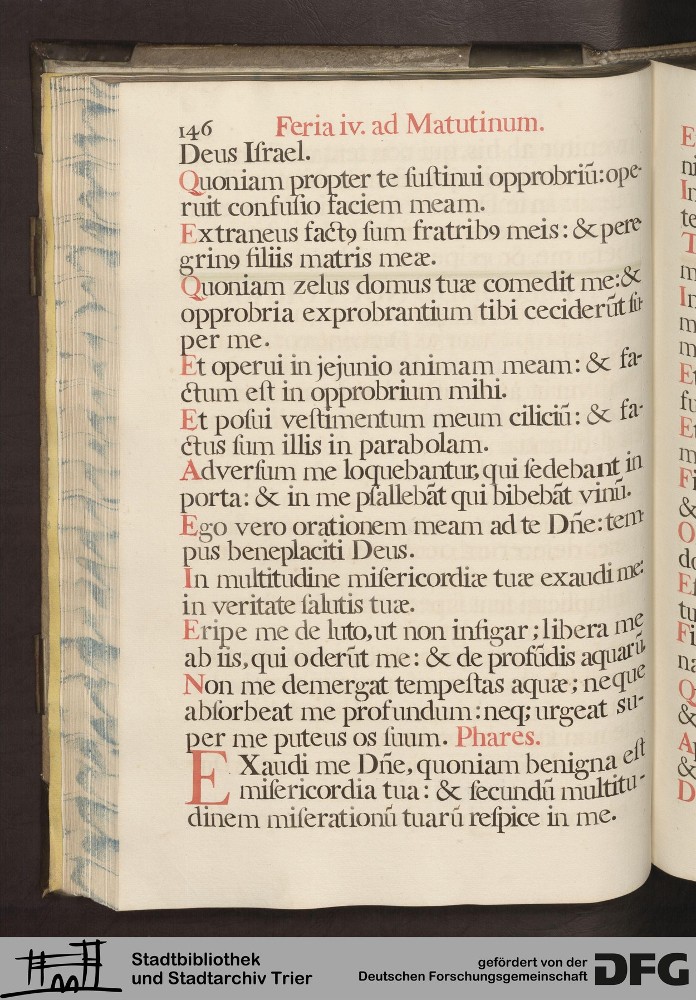 146 Feria iv. ad Matutinum.
Deus Iſrael.
Quoniam propter te ſuſtinui opprobriū: ope-
ruit confuſio faciem meam.
Extraneus factꝯ ſum fratribꝯ meis: & pere
grinꝯ filiis matris meæ.
Quoniam zelus domus tuæ comedit me: &
opprobria exprobrantium tibi ceciderūt ſu-
per me.
Et operui in jejunio animam meam: & fa-
ctum eſt in opprobrium mihi.
Et poſui veſtimentum meum ciliciū: & fa-
ctus ſum illis in parabolam.
Adverſum me loquebantur, qui ſedebant in
porta: & in me pſallebāt qui bibebāt vinū.
Ego vero orationem meam ad te Dñe: tem
pus beneplaciti Deus.
In multitudine miſericordiæ tuæ exaudi me:
in veritate ſalutis tuæ.
Eripe me de luto, ut non infigar; libera me
ab iis, qui oderūt me: & de profūdis aquarū.
Non me demergat tempeſtas aquæ; neque
abſorbeat me profundum: neq; urgeat su-
per me puteus os ſuum. Phares.
EXaudi me Dñe, quoniam benigna eſt
miſericordia tua: & ſecundū multitu-
dinem miſerationū tuarū reſpice in me.
Stadtbibliothek
und Stadtarchiv Trier
gefördert von der
Deutschen Forschungsgemeinschaft
DFG